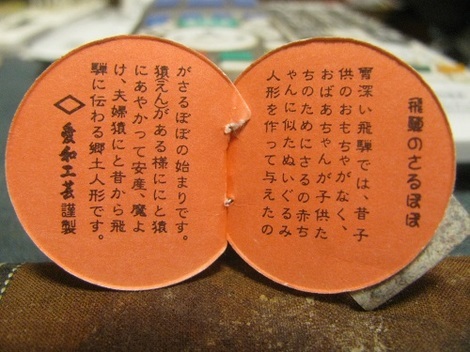 飛騨のさるぼぼ
雪深い飛騨では、昔子
供のおもちゃがなく、
おばあちゃんが子供た
ちのためにさるの赤ち
ゃんに似たぬいぐるみ
人形を作って与えたの
がさるぼぼの始まりです。
猿えんがある様ににと猿
にあやかって安産、魔よ
け、夫婦猿にと昔から飛
騨に伝わる郷土人形です。
愛和工芸謹製